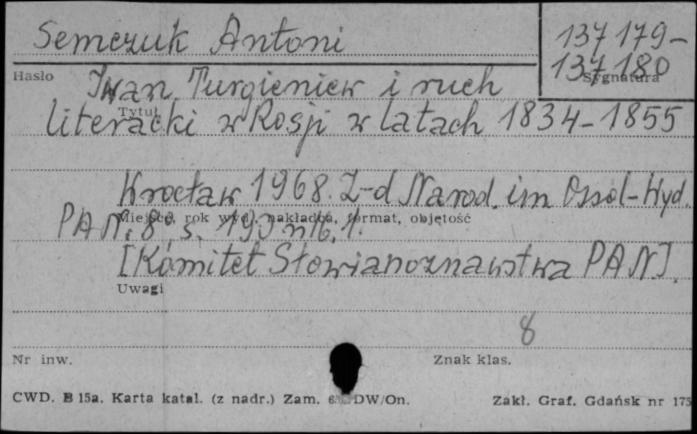 Semczuk Antoni
137 179-
137 180
Hasło
Sygnatura
Iwan Turgieniew i ruch
Tytuł
literacki w Rosji w latach 1834-1855
Wrocław 1968. Z-d Narod. im Ossol-Wyd.
Miejsce, rok wyd., nakładca, format, objętość
PAN. 8° s. 193
[Komitet Słowianoznawstwa PAN].
Uwagi
8
Nr inw.
Znak klas.
CWD. B 15a. Karta katal. (z nadr.) Zam. DW/On.
Zakł. Graf. Gdańsk nr 175